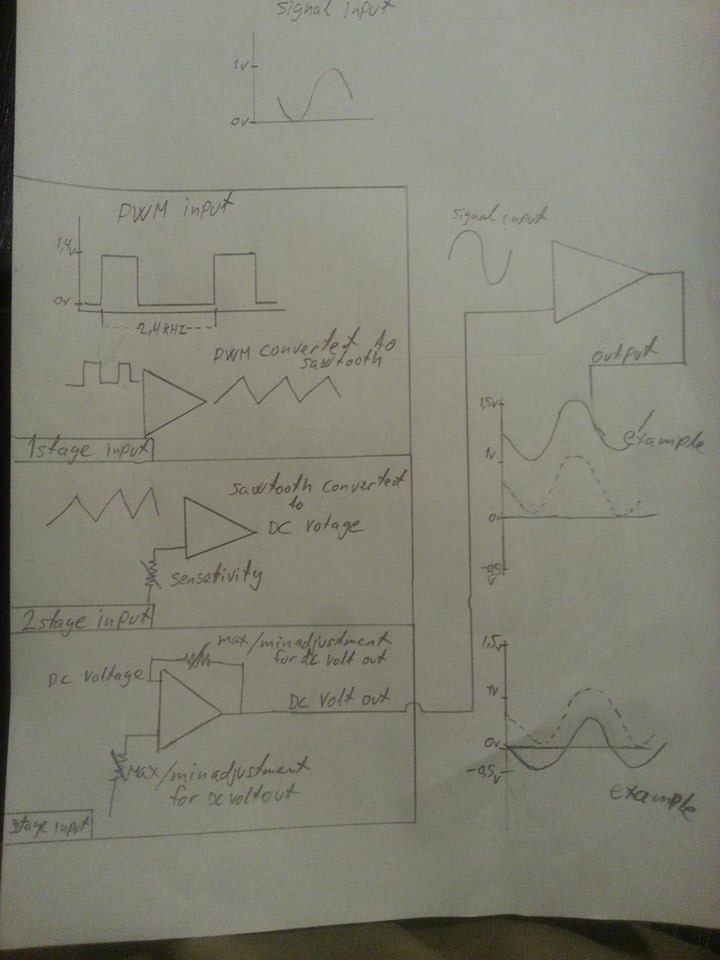 Signal input
1v
0v
PWM input
1,4v
0v
2,4 kHz
PWM convertet to
sawtooth
1 stage input
sawtooth convertet
to
DC votage
sensetivity
2 stage input
max/min adjustment
for dc volt out
DC voltage
DC volt out
max/min adjustment
for dc volt out
3 stage input
signal input
output
1,5v
example
1v
0
-0,5
v
1,5v
1v
0v
-0,5v
example